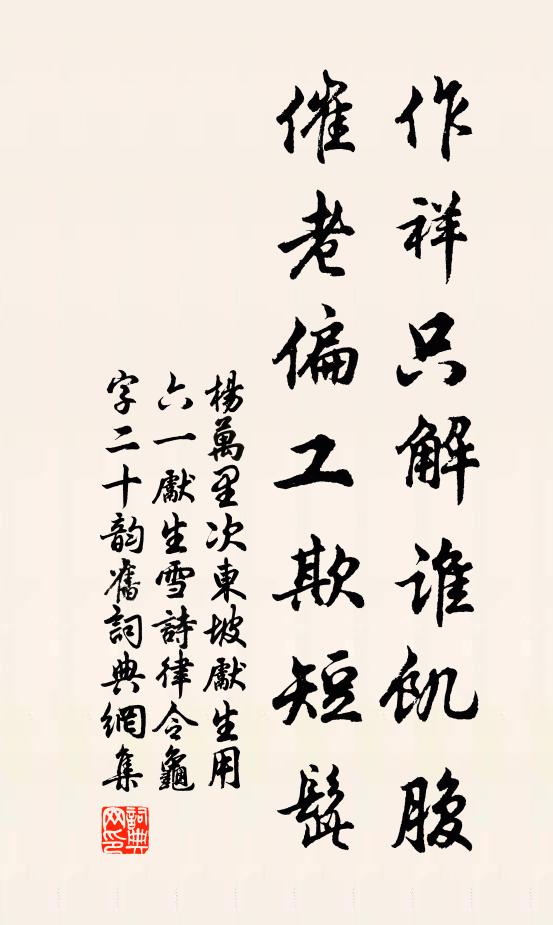 作祥只解誰飢腹
催老偏工欺短髭
楊萬里次東坡獻生用
六一獻生雪詩律令龜
字二十韵舊詞典網集
詞典網印